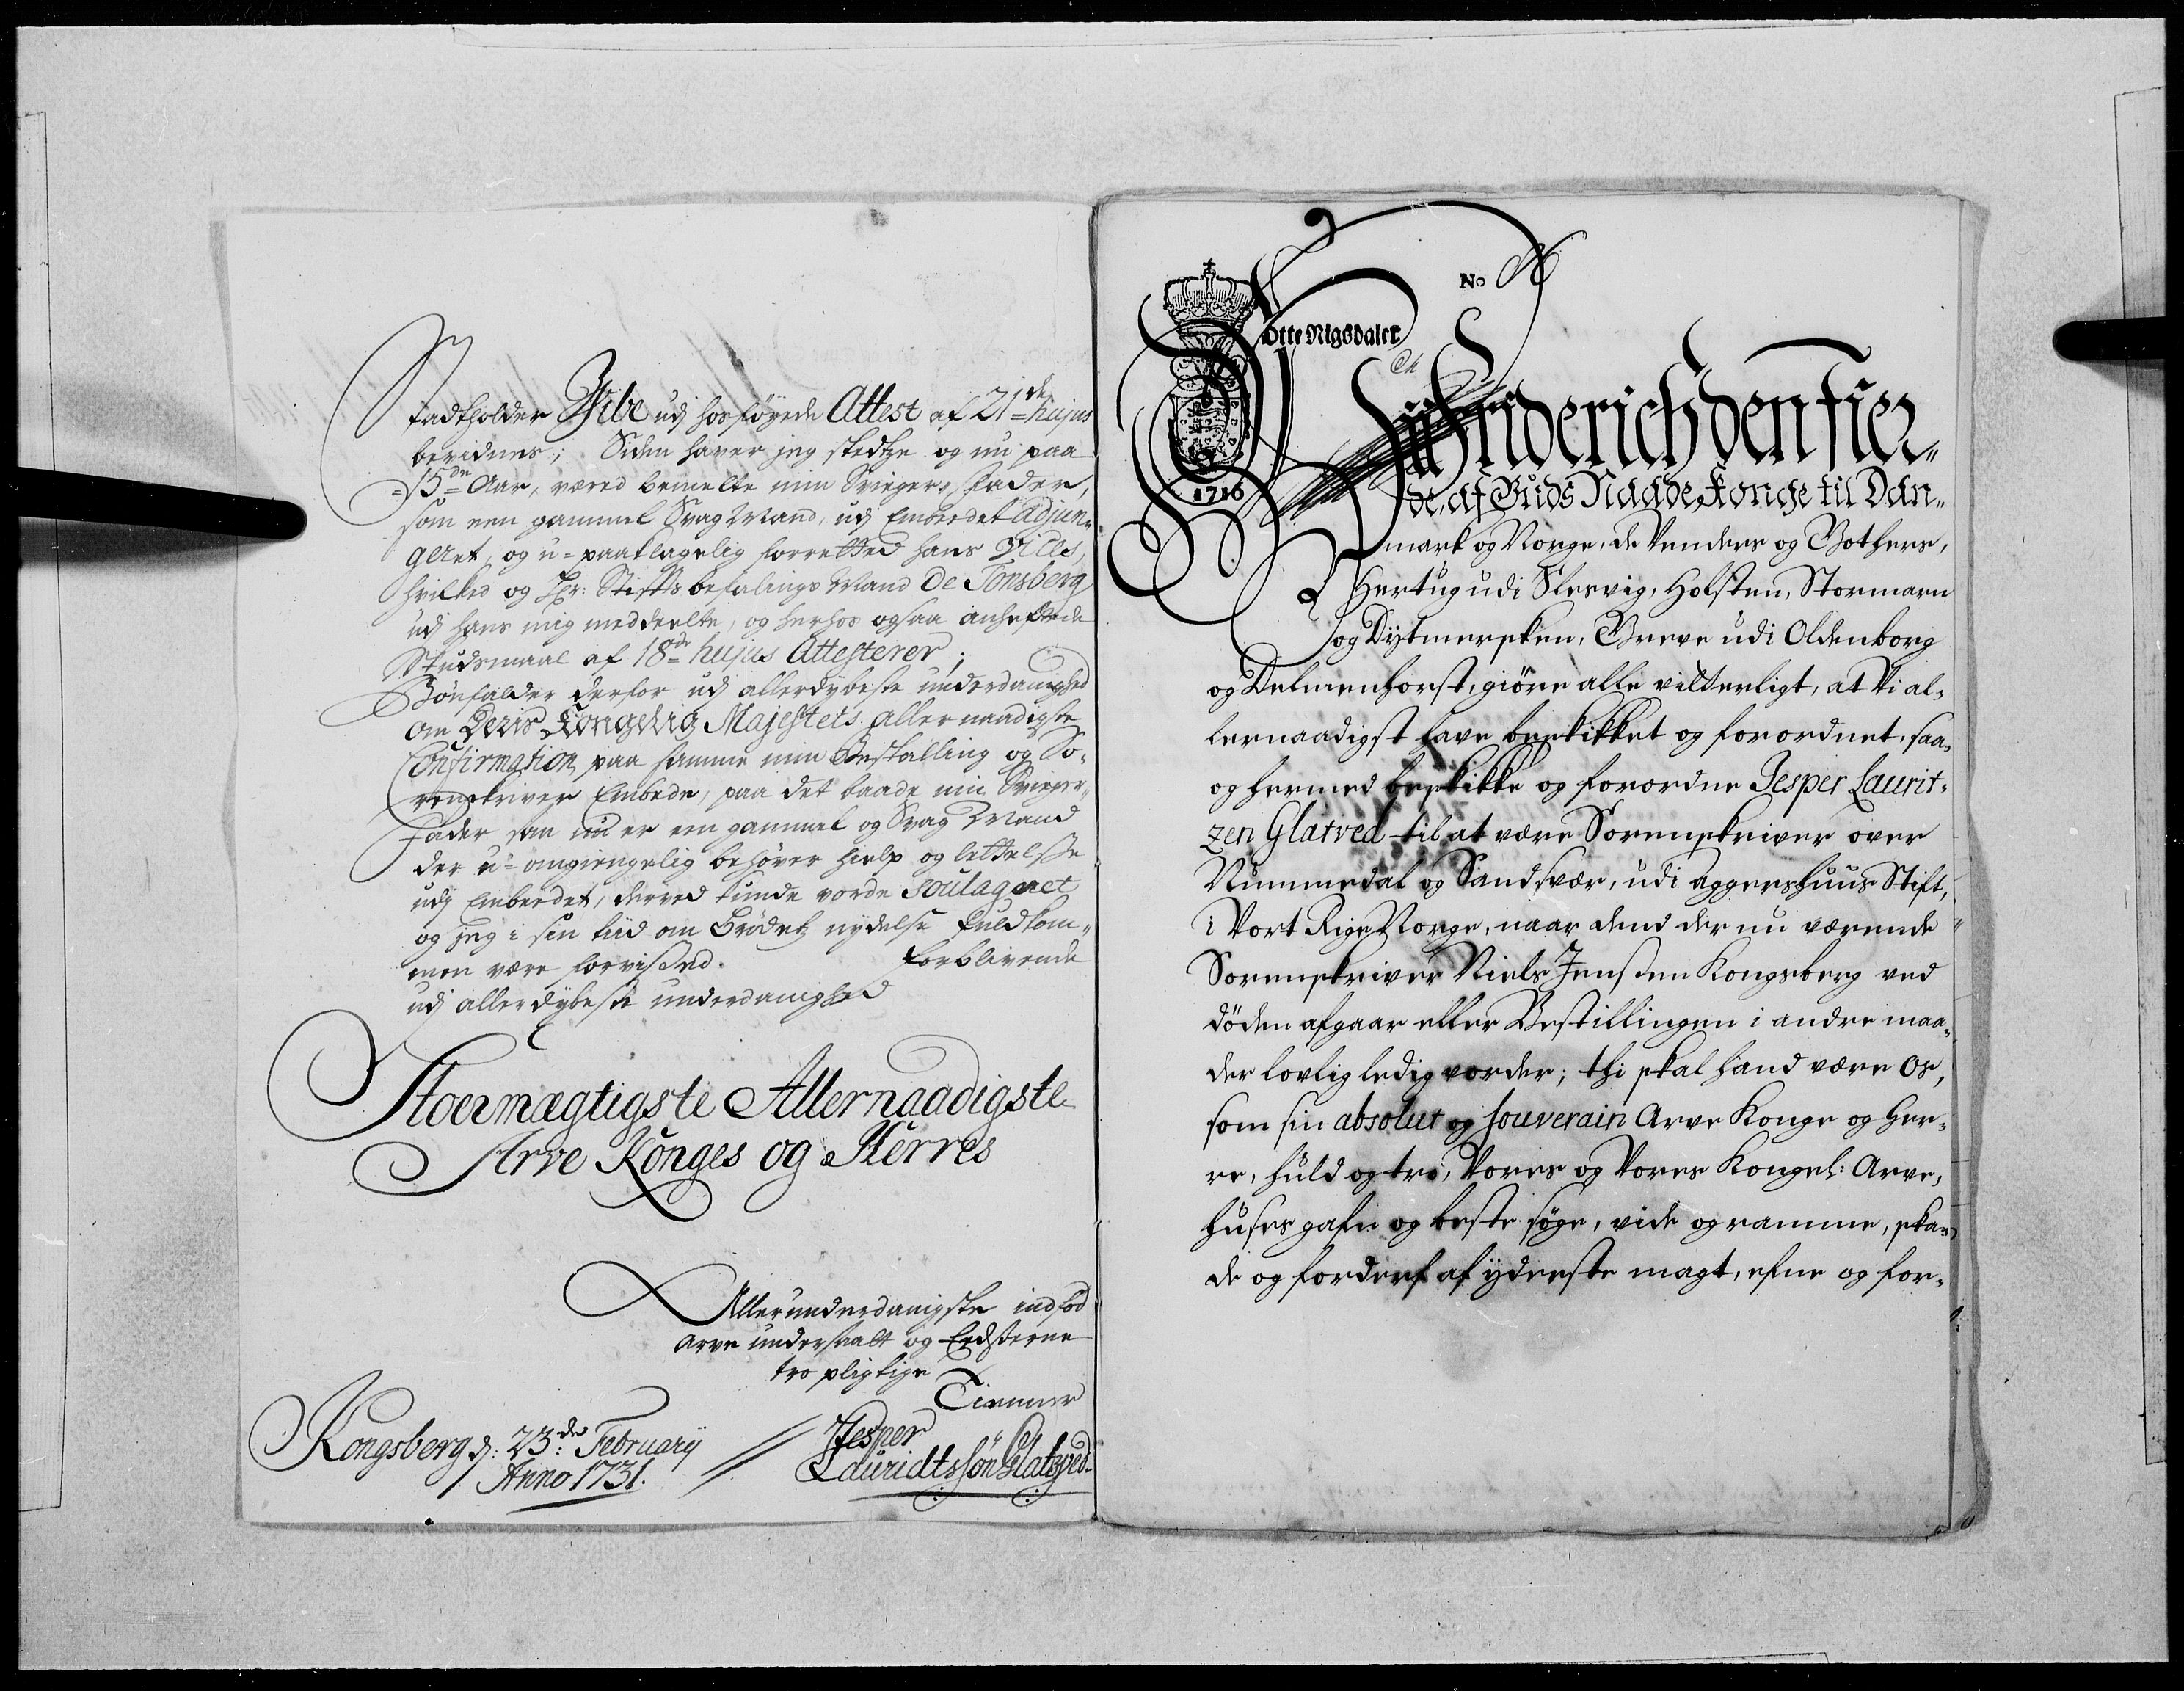 Stadtholder Wibe udj hosföyede Attest af 21de hujus
bevidner; Siden haver jeg stedtze og nu paa
=15de= Aar, væred bemelte min Svieger=Fader,
som een gammel Svag Mand, udj Embedet adjun=
geret, og u=paaklagelig forretted hans Vices,
hvilked og Hr: Stiftsbefalings Mand De Tonsberg
udj hans mig meddeelte, og herhos ogsaa anheftede
Skudsmaal af 18de hujus Attesterer;
Bönfalder derfor udj allerdybeste underdanighed
om Deris Kongelig Majestets allernaadigste
Confirmation paa samme min Bestalling og So=
renskriver Embede, paa det baade min Svieger=
Fader som nu er een gammel og Svag Mand
der u=omgiengelig behöver hielp og lettelse
udj Embedet, derved kunde vorde soulageret
og jeg i sin tiid om Brödetz nydelse fuldkom=
men være forvissed. Forblivende
udj allerdybeste underdanighed
Stoermægtigste Allernaadigste
Arve Konges og Herres
Allerunderdanigste indfod
arve undersaatt og
tro pligtige
Tienner
Kongsberg d: 23de February
Anno 1731.
Jesper
Lauridtssön Glatved
No
Otte Rigsdaler
1716
Wii Friderich den fier=
de, af Guds Naade Konge til Dan=
mark og Norge, de Venders og Gothers,
Hertug udi Slesvig, Holsten, Stormarn
og Dytmersken, Greve udi Oldenborg
og Delmenhorst, giöre alle vitterligt, at Vi al=
lernaadigst have beskikket og forordnet, saa=
og hermed beskikke og forordne Jesper Laurit=
zen Glatved til at være Sorenskriver over
Nummedal og Sandsvær, udi Aggershuus Stift,
i Vort Rige Norge, naar dend der nu værende
Sorenskriver Niels Jenssen Kongsberg ved
döden afgaar eller Bestillingen i andre maa=
der lovlig ledig vorder; thi skal hand være Os,
som sin absolut og souverain Arve Konge og Her=
re, huld og tro, Vores og Vores Kongel: Arve,
huses gafn og beste söge, vide og ramme, ska=
de og forderf af yderste magt, efne og for=